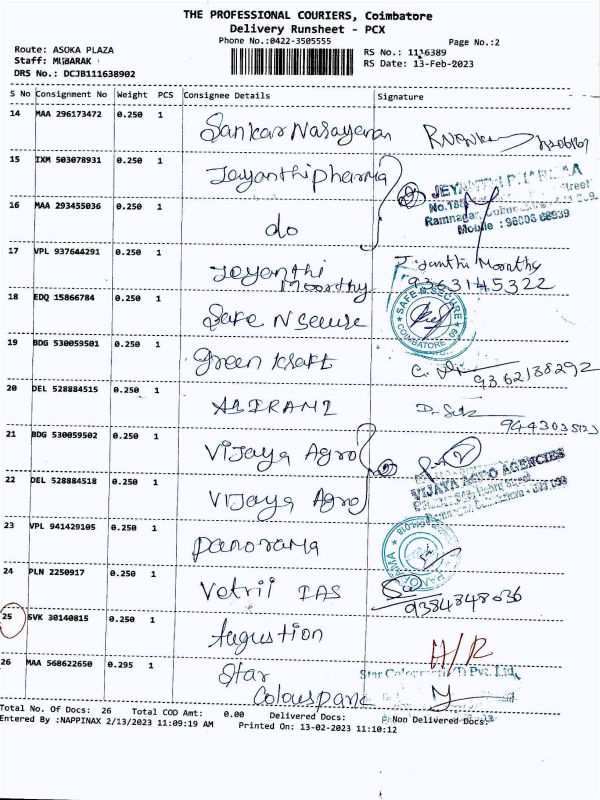 THE PROFESSIONAL COURIERS, Coimbatore
Delivery Runsheet - PCX
Phone No.:0422-3505555
Page No.:2
Route: ASOKA PLAZA
Staff: MUBARAK
DRS No.: DCJB111638902
RS No.: 1116389
RS Date: 13-Feb-2023
S No Consignment No Weight PCS Consignee Details Signature
14 MAA 296173472 0.250 1 Sankar Narayanan
15 IXM 503078931 0.250 1 Jeyanthi pharma
JEYANTHI
Ramnagar,
Mobile :
16 MAA 293455036 0.250 1 do
17 VPL 937644291 0.250 1 Jayanthi Moorthy J. Jyanthi Moorthy
9363145322
18 EDQ 15866784 0.250 1 Safe N secure
SAFE & SECURE
COIMBATORE
19 BDG 530059501 0.250 1 green kraft
9362138292
20 DEL 528884515 0.250 1 ABIRAMI
21 BDG 530059502 0.250 1 Vijaya Agro
VIJAYA AGRO AGENCIES
22 DEL 528884518 0.250 1 Vijaya Agro
23 VPL 941429105 0.250 1 panorama
24 PLN 2250917 0.250 1 Vetrii IAS
9384848036
25 SVK 30140815 0.250 1 Augustion
H/R
26 MAA 568622650 0.295 1 Star Colourpark
Pvt. Ltd.
Total No. Of Docs: 26 Total COD Amt: 0.00 Delivered Docs: Non Delivered Docs:
Entered By :NAPPINAX 2/13/2023 11:09:19 AM Printed On: 13-02-2023 11:10:12